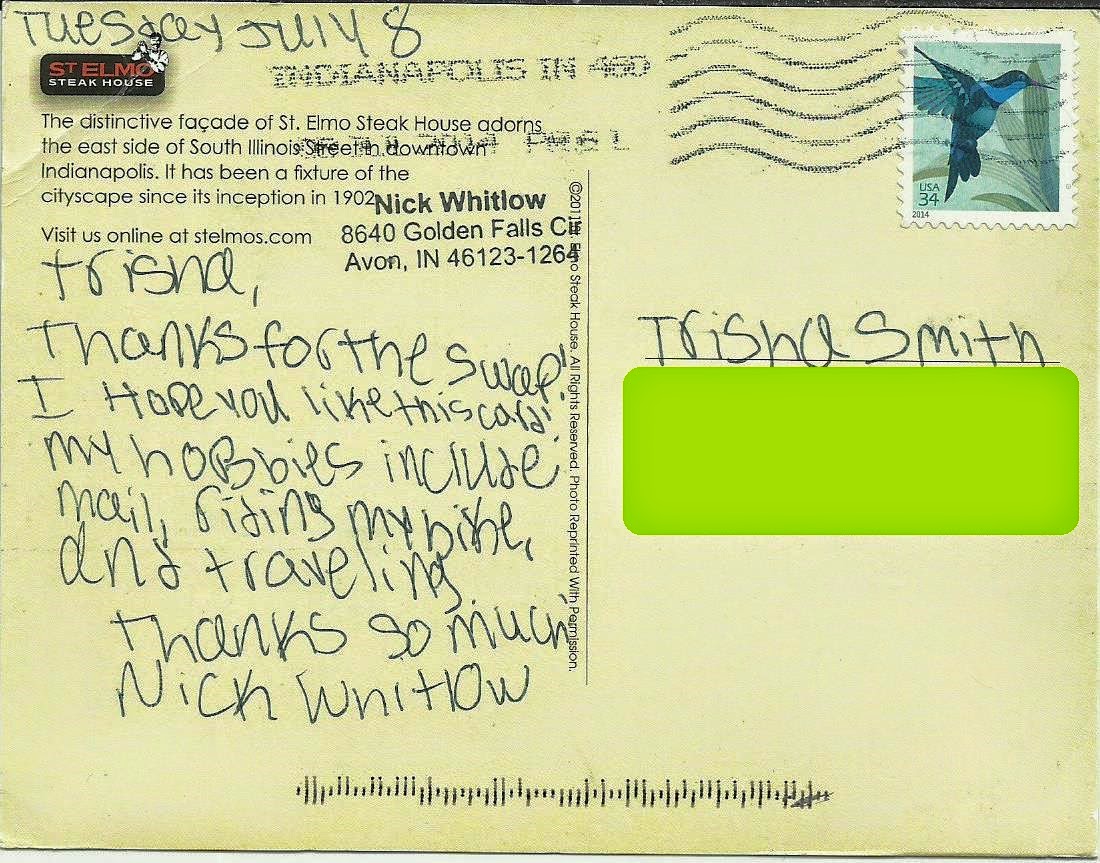 Tuesday July 8
ST ELMO
STEAK HOUSE
INDIANAPOLIS IN 460
The distinctive façade of St. Elmo Steak House adorns
the east side of South Illinois Street in downtown
Indianapolis. It has been a fixture of the
cityscape since its inception in 1902.
Visit us online at stelmos.com
Nick Whitlow
8640 Golden Falls Cir
Avon, IN 46123-1264
Trisha,
Thanks for the swap!
I Hope you like this card!
my hobbies include
mail, riding my bike,
and traveling
Thanks so much
Nick Whitlow
Elmo Steak House. All Rights Reserved. Photo Reprinted With Permission.
USA
34
2014
Trisha Smith